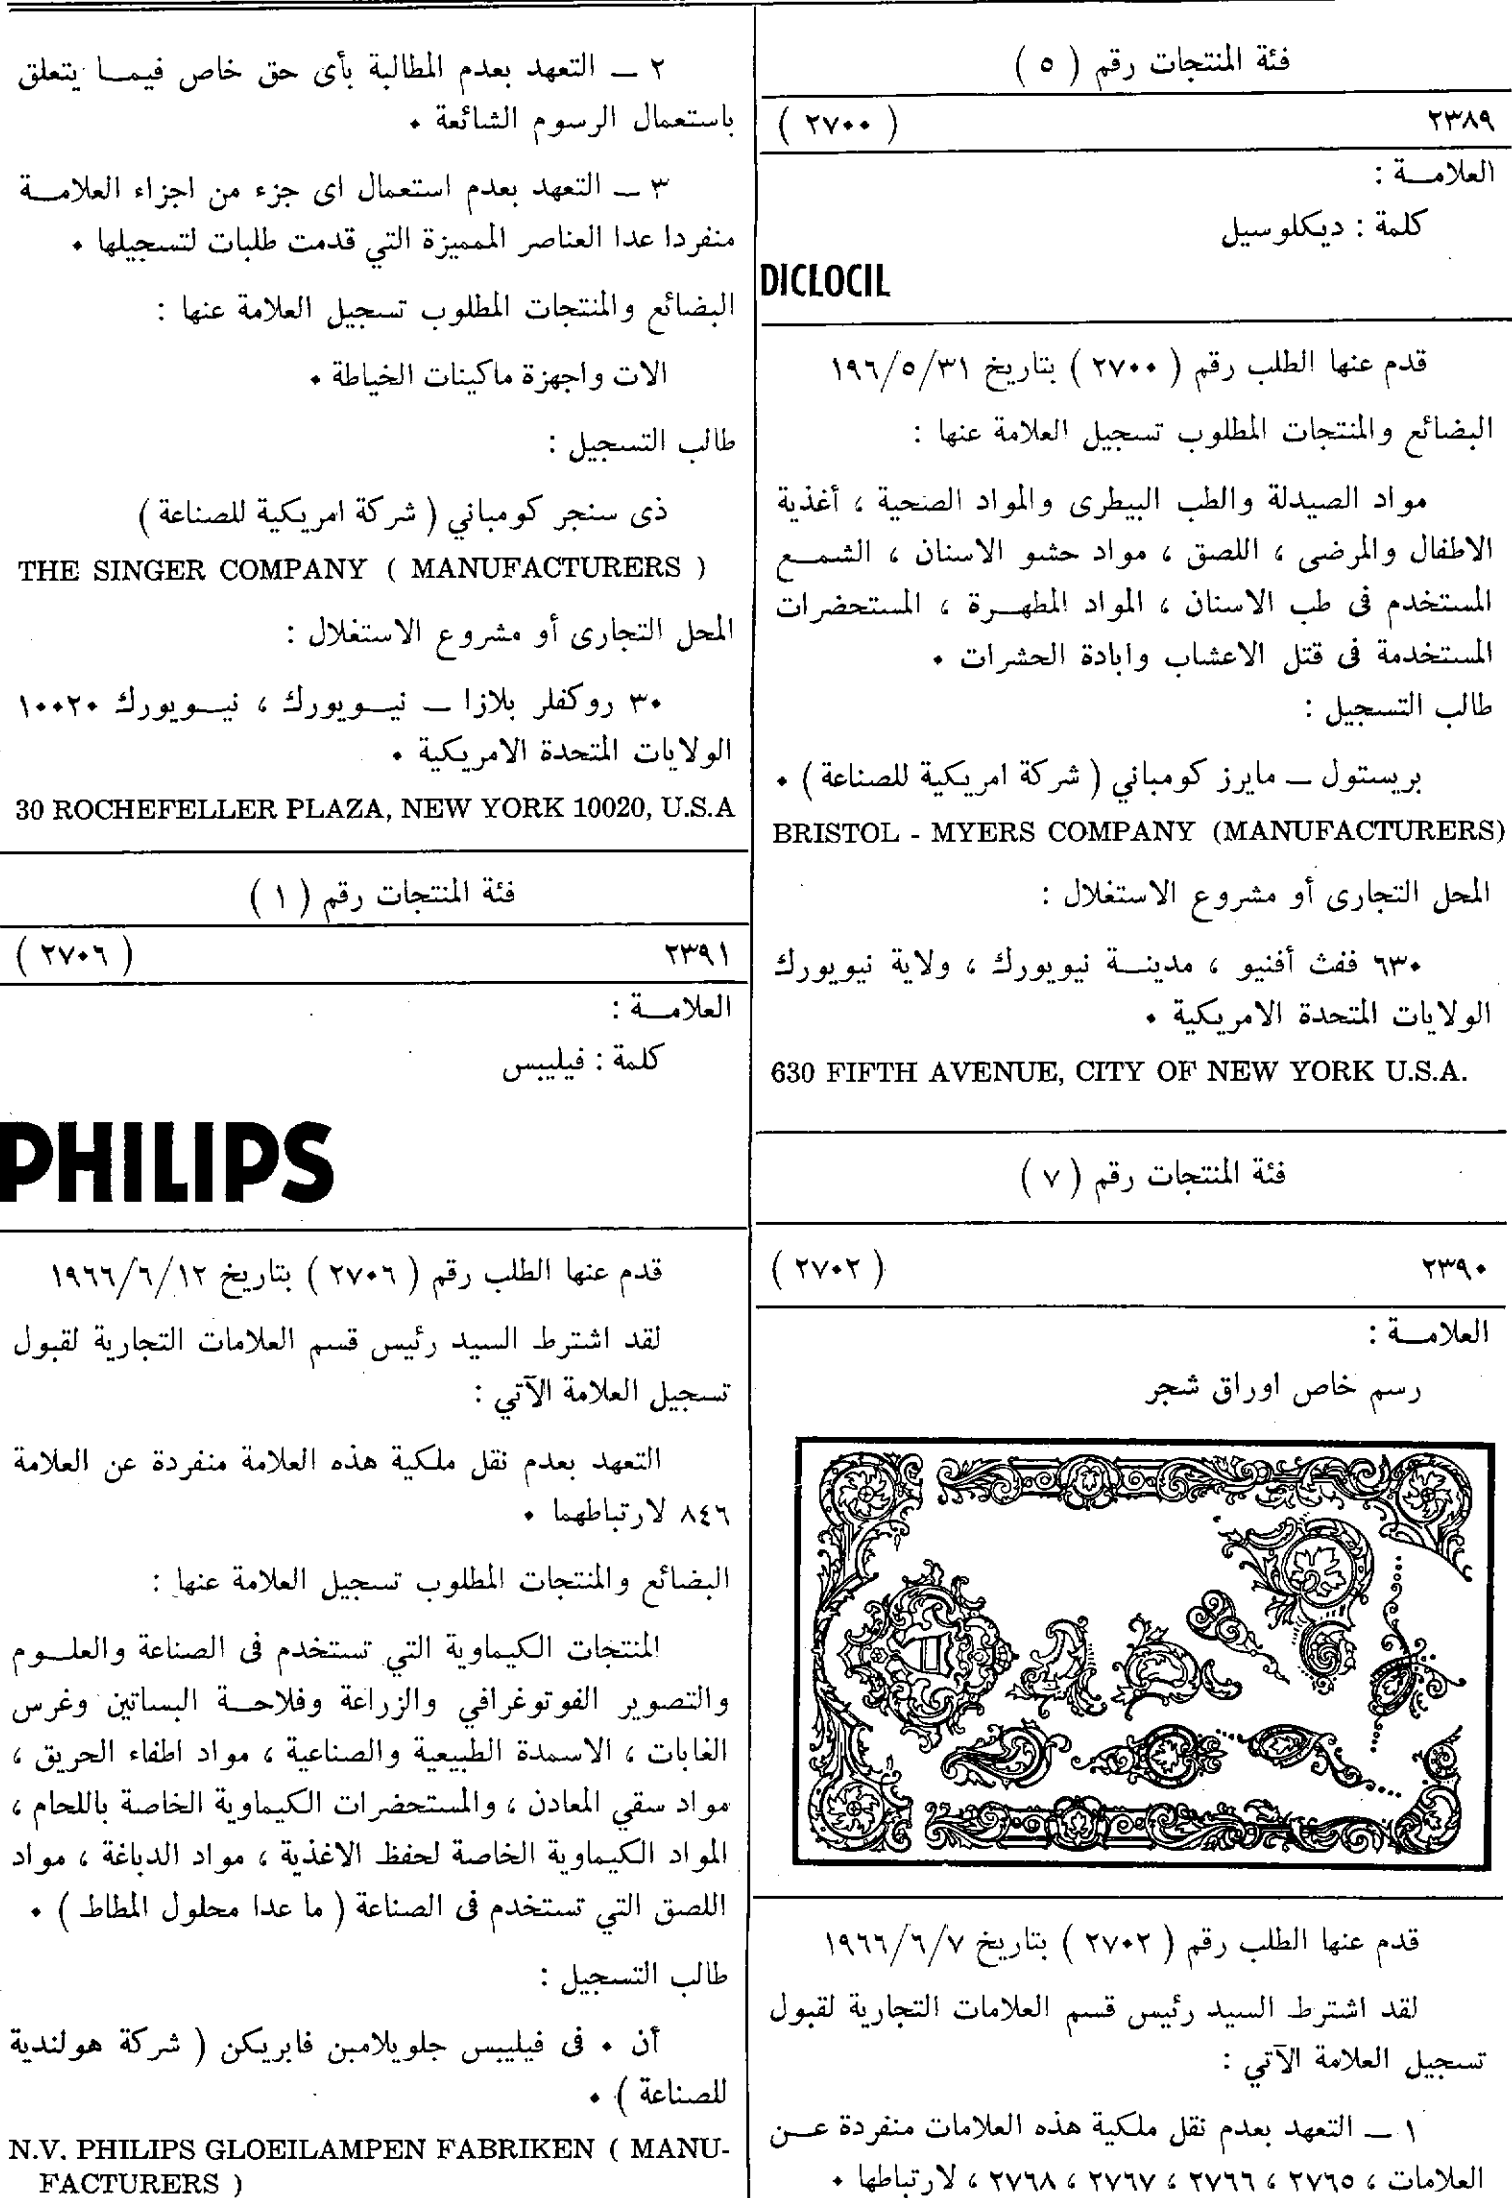 فئة المنتجات رقم ( ٥ )
٢٣٨٩ ( ٢٧٠٠ )
العلامـــة :
كلمة : ديكلوسيل
DICLOCIL
قدم عنها الطلب رقم ( ٢٧٠٠ ) بتاريخ ١٩٦/٥/٣١
البضائع والمنتجات المطلوب تسجيل العلامة عنها :
مواد الصيدلة والطب البيطرى والمواد الصحية ، أغذية
الاطفال والمرضى ، اللصق ، مواد حشو الاسنان ، الشمـــع
المستخدم فى طب الاسنان ، المواد المطهـــرة ، المستحضرات
المستخدمة فى قتل الاعشاب وابادة الحشرات ٠
طالب التسجيل :
بريستول ـ مايرز كومباني ( شركة امريكية للصناعة ) ٠
BRISTOL - MYERS COMPANY (MANUFACTURERS)
المحل التجارى أو مشروع الاستغلال :
٦٣٠ ففث أفنيو ، مدينـــة نيويورك ، ولاية نيويورك
الولايات المتحدة الامريكية ٠
630 FIFTH AVENUE, CITY OF NEW YORK U.S.A.
فئة المنتجات رقم ( ٧ )
٢٣٩٠ ( ٢٧٠٢ )
العلامـــة :
رسم خاص اوراق شجر
قدم عنها الطلب رقم ( ٢٧٠٢ ) بتاريخ ١٩٦٦/٦/٧
لقد اشترط السيد رئيس قسم العلامات التجارية لقبول
تسجيل العلامة الآتي :
١ ـ التعهد بعدم نقل ملكية هذه العلامات منفردة عـــن
العلامات ، ٢٧٦٥ ، ٢٧٦٦ ، ٢٧٦٧ ، ٢٧٦٨ ، لارتباطها ٠
٢ ـ التعهد بعدم المطالبة بأى حق خاص فيمـــا يتعلق
باستعمال الرسوم الشائعة ٠
٣ ـ التعهد بعدم استعمال اى جزء من اجزاء العلامـــة
منفردا عدا العناصر المميزة التي قدمت طلبات لتسجيلها ٠
البضائع والمنتجات المطلوب تسجيل العلامة عنها :
الات واجهزة ماكينات الخياطة ٠
طالب التسجيل :
ذى سنجر كومباني ( شركة امريكية للصناعة )
THE SINGER COMPANY ( MANUFACTURERS )
المحل التجارى أو مشروع الاستغلال :
٣٠ روكفلر بلازا ـ نيـــويورك ، نيـــويورك ١٠٠٢٠
الولايات المتحدة الامريكية ٠
30 ROCHEFELLER PLAZA, NEW YORK 10020, U.S.A
فئة المنتجات رقم ( ١ )
٢٣٩١ ( ٢٧٠٦ )
العلامـــة :
كلمة : فيليبس
PHILIPS
قدم عنها الطلب رقم ( ٢٧٠٦ ) بتاريخ ١٩٦٦/٦/١٢
لقد اشترط السيد رئيس قسم العلامات التجارية لقبول
تسجيل العلامة الآتي :
التعهد بعدم نقل ملكية هذه العلامة منفردة عن العلامة
٨٤٦ لارتباطهما ٠
البضائع والمنتجات المطلوب تسجيل العلامة عنها :
المنتجات الكيماوية التي تستخدم فى الصناعة والعلـــوم
والتصوير الفوتوغرافي والزراعة وفلاحـــة البساتين وغرس
الغابات ، الاسمدة الطبيعية والصناعية ، مواد اطفاء الحريق ،
مواد سقي المعادن ، والمستحضرات الكيماوية الخاصة باللحام ،
المواد الكيماوية الخاصة لحفظ الاغذية ، مواد الدباغة ، مواد
اللصق التي تستخدم فى الصناعة ( ما عدا محلول المطاط ) ٠
طالب التسجيل :
أن ٠ فى فيليبس جلويلامبن فابريكن ( شركة هولندية
للصناعة ) ٠
N.V. PHILIPS GLOEILAMPEN FABRIKEN ( MANU-
FACTURERS )